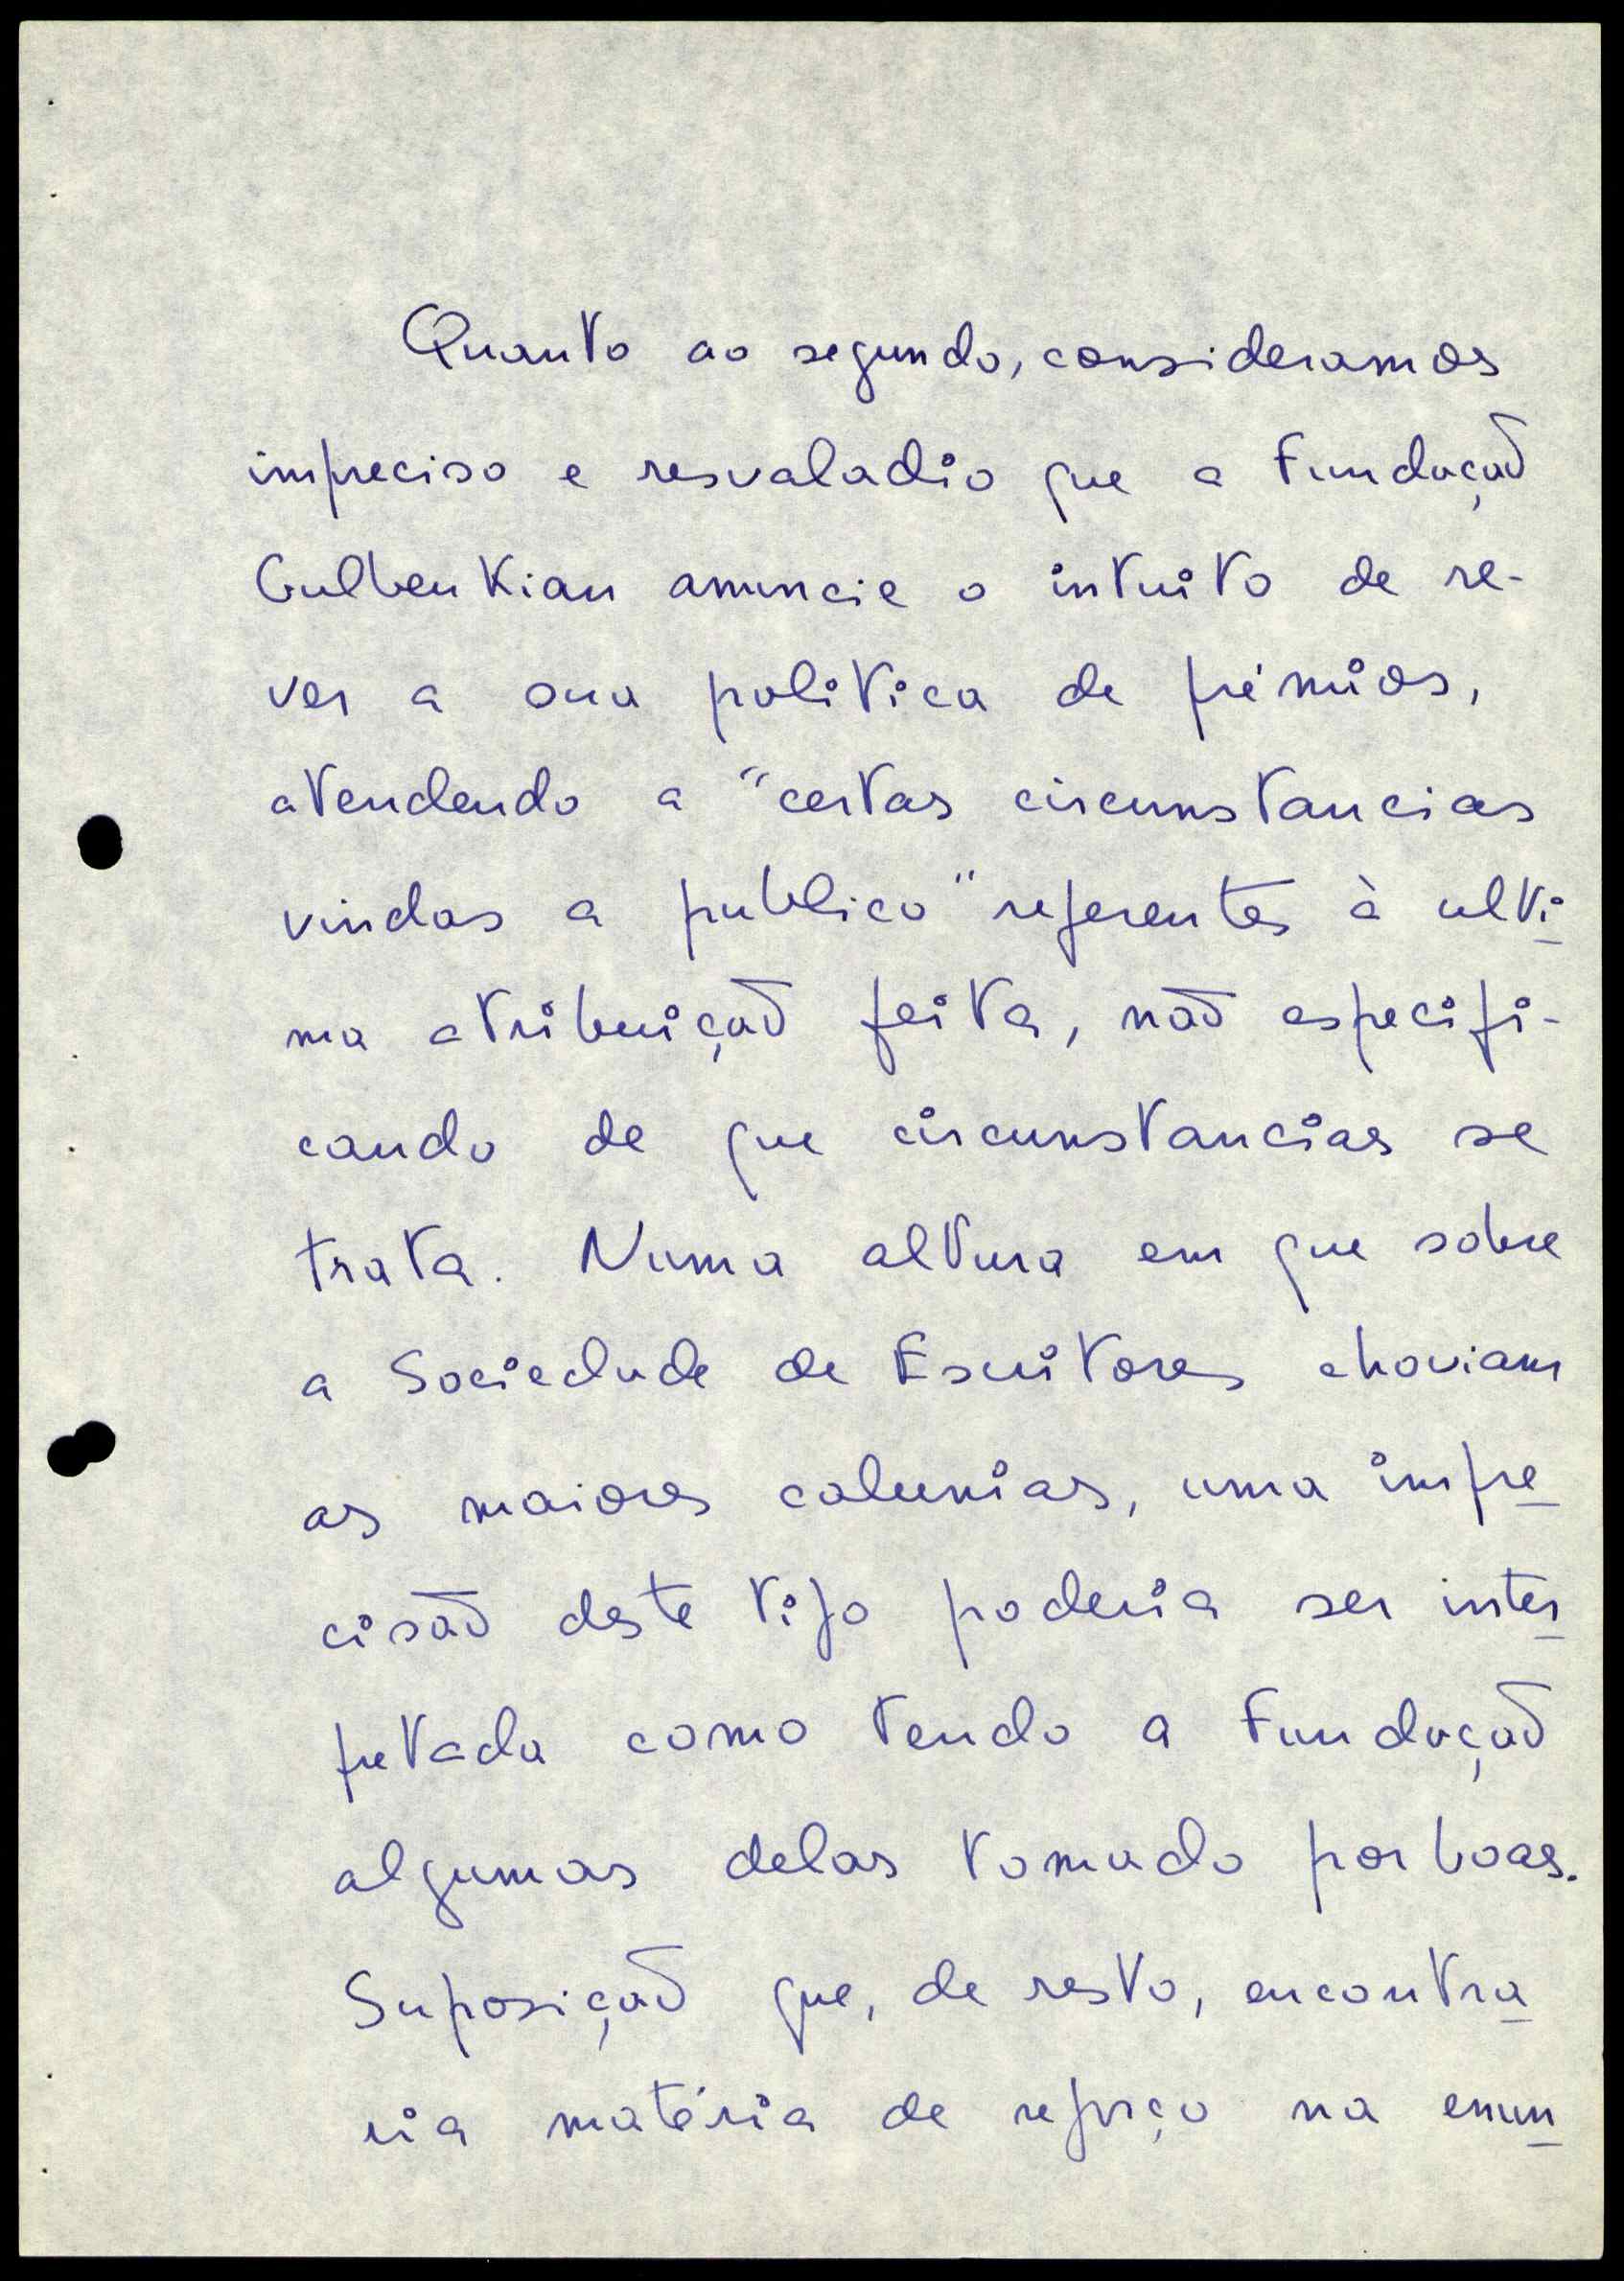 Quanto ao segundo, consideramos
impreciso e resvaladio que a Fundação
Gulbenkian anuncie o intuito de re-
ver a sua politica de prémios,
atendendo a "certas circunstancias
vindas a publico" referentes à ulti
ma atribuição feita, não especifi-
cando de que circunstancias se
trata. Numa altura em que sobre
a Sociedade de Escritores choviam
as maiores calunias, uma impre
cisão deste tipo poderia ser inter
pretada como tendo a Fundação
algumas delas tomado por boas.
Suposição que, de resto, encontra
ria matéria de reforço na enun